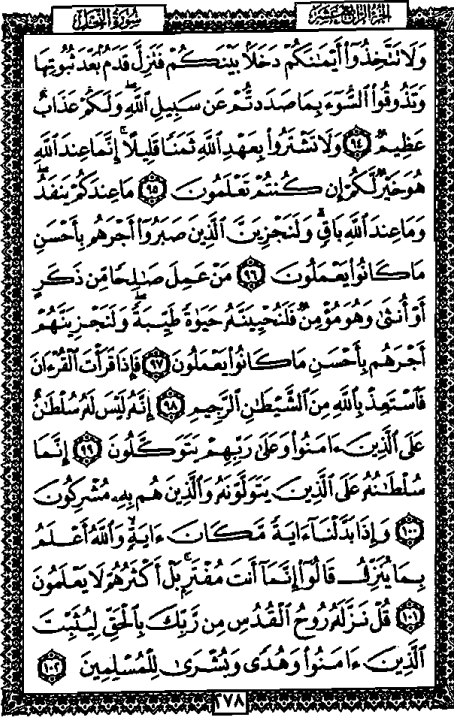 سُورَةُ النَّحْلِ الجُزْءُ الرَّابِعَ عَشَرَ
وَلَا تَتَّخِذُوٓا۟ أَيْمَـٰنَكُمْ دَخَلًۢا بَيْنَكُمْ فَتَزِلَّ قَدَمٌۢ بَعْدَ ثُبُوتِهَا
وَتَذُوقُوا۟ ٱلسُّوٓءَ بِمَا صَدَدتُّمْ عَن سَبِيلِ ٱللَّهِ ۖ وَلَكُمْ عَذَابٌ
عَظِيمٌ ٩٤ وَلَا تَشْتَرُوا۟ بِعَهْدِ ٱللَّهِ ثَمَنًا قَلِيلًا ۚ إِنَّمَا عِندَ ٱللَّهِ
هُوَ خَيْرٌ لَّكُمْ إِن كُنتُمْ تَعْلَمُونَ ٩٥ مَا عِندَكُمْ يَنفَدُ ۖ
وَمَا عِندَ ٱللَّهِ بَاقٍ ۗ وَلَنَجْزِيَنَّ ٱلَّذِينَ صَبَرُوٓا۟ أَجْرَهُم بِأَحْسَنِ
مَا كَانُوا۟ يَعْمَلُونَ ٩٦ مَنْ عَمِلَ صَـٰلِحًا مِّن ذَكَرٍ
أَوْ أُنثَىٰ وَهُوَ مُؤْمِنٌ فَلَنُحْيِيَنَّهُۥ حَيَوٰةً طَيِّبَةً ۖ وَلَنَجْزِيَنَّهُمْ
أَجْرَهُم بِأَحْسَنِ مَا كَانُوا۟ يَعْمَلُونَ ٩٧ فَإِذَا قَرَأْتَ ٱلْقُرْءَانَ
فَٱسْتَعِذْ بِٱللَّهِ مِنَ ٱلشَّيْطَـٰنِ ٱلرَّجِيمِ ٩٨ إِنَّهُۥ لَيْسَ لَهُۥ سُلْطَـٰنٌ
عَلَى ٱلَّذِينَ ءَامَنُوا۟ وَعَلَىٰ رَبِّهِمْ يَتَوَكَّلُونَ ٩٩ إِنَّمَا
سُلْطَـٰنُهُۥ عَلَى ٱلَّذِينَ يَتَوَلَّوْنَهُۥ وَٱلَّذِينَ هُم بِهِۦ مُشْرِكُونَ
١٠٠ وَإِذَا بَدَّلْنَآ ءَايَةً مَّكَانَ ءَايَةٍ ۙ وَٱللَّهُ أَعْلَمُ
بِمَا يُنَزِّلُ قَالُوٓا۟ إِنَّمَآ أَنتَ مُفْتَرٍۭ ۚ بَلْ أَكْثَرُهُمْ لَا يَعْلَمُونَ
١٠١ قُلْ نَزَّلَهُۥ رُوحُ ٱلْقُدُسِ مِن رَّبِّكَ بِٱلْحَقِّ لِيُثَبِّتَ
ٱلَّذِينَ ءَامَنُوا۟ وَهُدًى وَبُشْرَىٰ لِلْمُسْلِمِينَ ١٠٢
٢٧٨